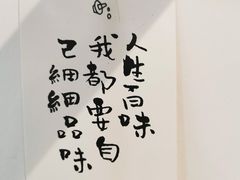 人生百味
我都要自
己细细品味